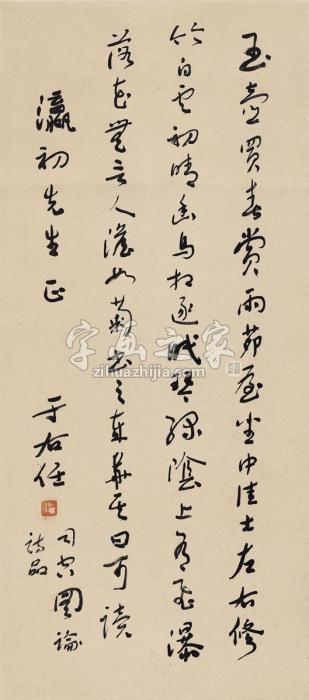 玉壺買春賞雨茆屋坐中佳士左右修
竹白雲初晴幽鳥相逐眠琴綠陰上有飛瀑
落花無言人澹如菊書之歲華其曰可讀
瀛初先生正
于右任
司空圖論
詩品
字画之家
www.zihuazhijia.com